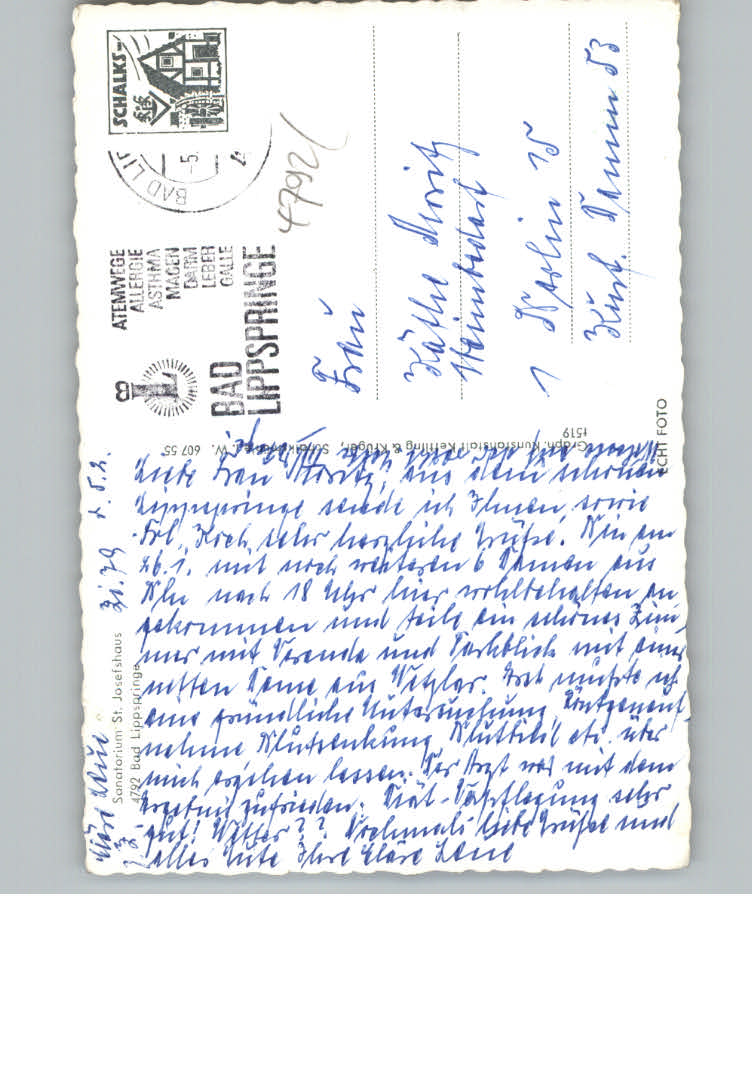 Sanatorium St. Josefshaus
4792 Bad Lippspringe
Zi. 79 d. 5.2.
Liebe Frau Moritz, aus dem schönen
Lippspringe sende ich Ihnen, sowie
Frl. Koch sehr herzliche Grüße. Bin am
26.1. mit noch weiteren 6 Damen aus
Bln nach 18 Uhr hier wohlbehalten an
gekommen und teile ein schönes Zim-
mer mit Veranda und Parkblick mit einer
netten Dame aus Wetzlar. Erst mußte ich
eine gründliche Untersuchung, Röntgenauf-
nahme Blutsenkung Blutbild etc. über
mich ergehen lassen. Der Arzt war mit dem
Ergebnis zufrieden. Diät-Verpflegung sehr
gut! Wetter?? Nochmals liebe Grüße und
alles Gute Ihre Kläre
Graph. Kunstanstalt Kettling & Krüger, Schalksmühle i. W. 607 55
f519
ECHT FOTO
8
BAD
LIPPSPRINGE
ATEMWEGE
ALLERGIE
ASTHMA
MAGEN
DARM
LEBER
GALLE
BAD LIP
-5.
SCHALKS-
4792
Frau
Käthe Moritz
1 Berlin 15
Kurf. Damm 53